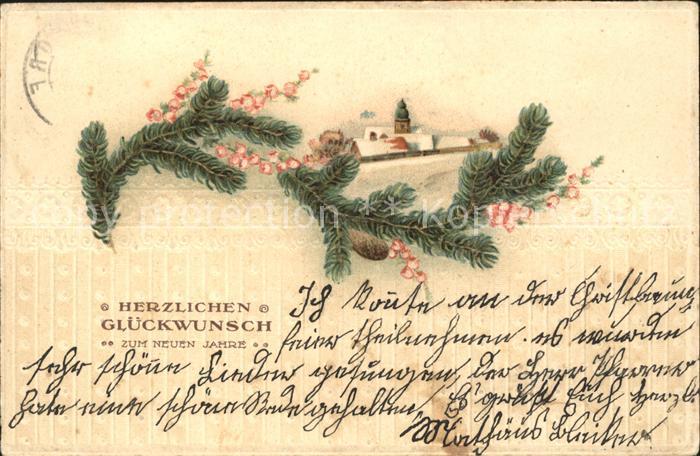 HERZLICHEN
GLÜCKWUNSCH
ZUM NEUEN JAHRE
Ich konte an der Christbaum
feier theilnehmen. es wurden
sehr schöne Lieder gesungen, der Herr Pfarrer
hate eine schöne Rede gehalten. Es grüßt Euch herzl.
Mathäus
copy protection ** Kopierschutz